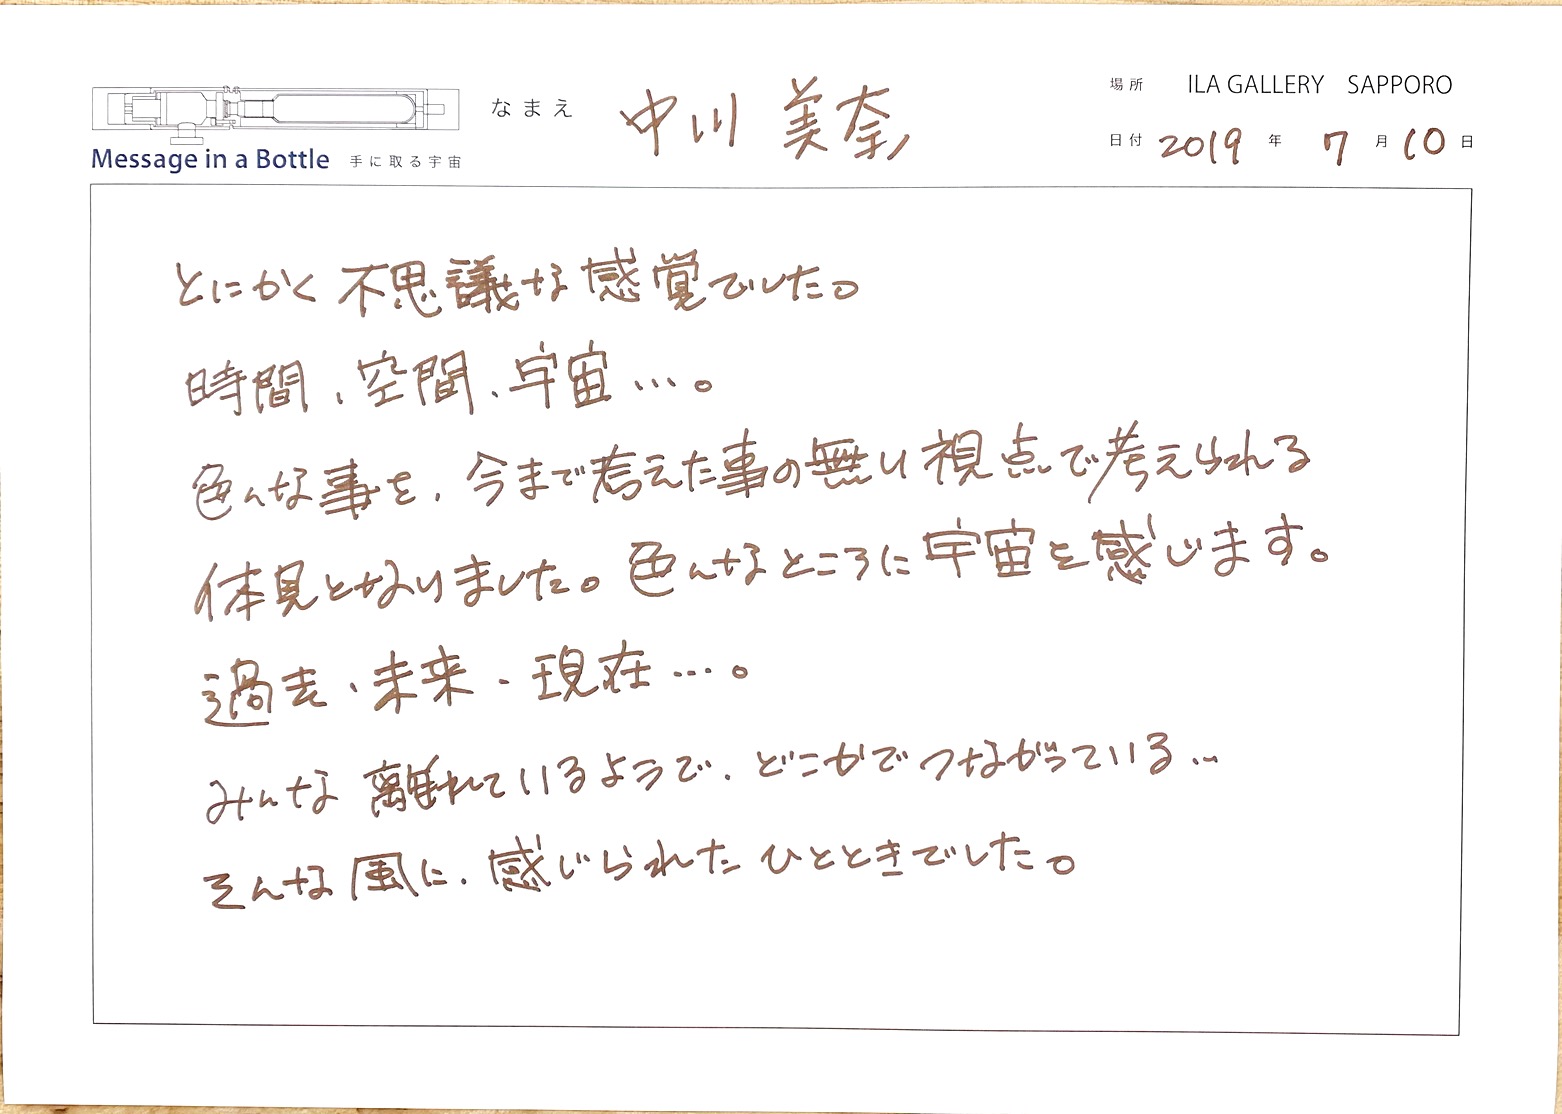 なまえ 中川 美奈
場所 ILA GALLERY SAPPORO
日付 2019 年 7 月 10 日
Message in a Bottle 手に取る宇宙
とにかく不思議な感覚でした。
時間、空間、宇宙…。
色んな事を、今まで考えた事の無い視点で考えられる
体見となりました。色んなところに宇宙を感じます。
過去・未来・現在…。
みんな離れているようで、どこかでつながっている…
そんな風に、感じられたひとときでした。